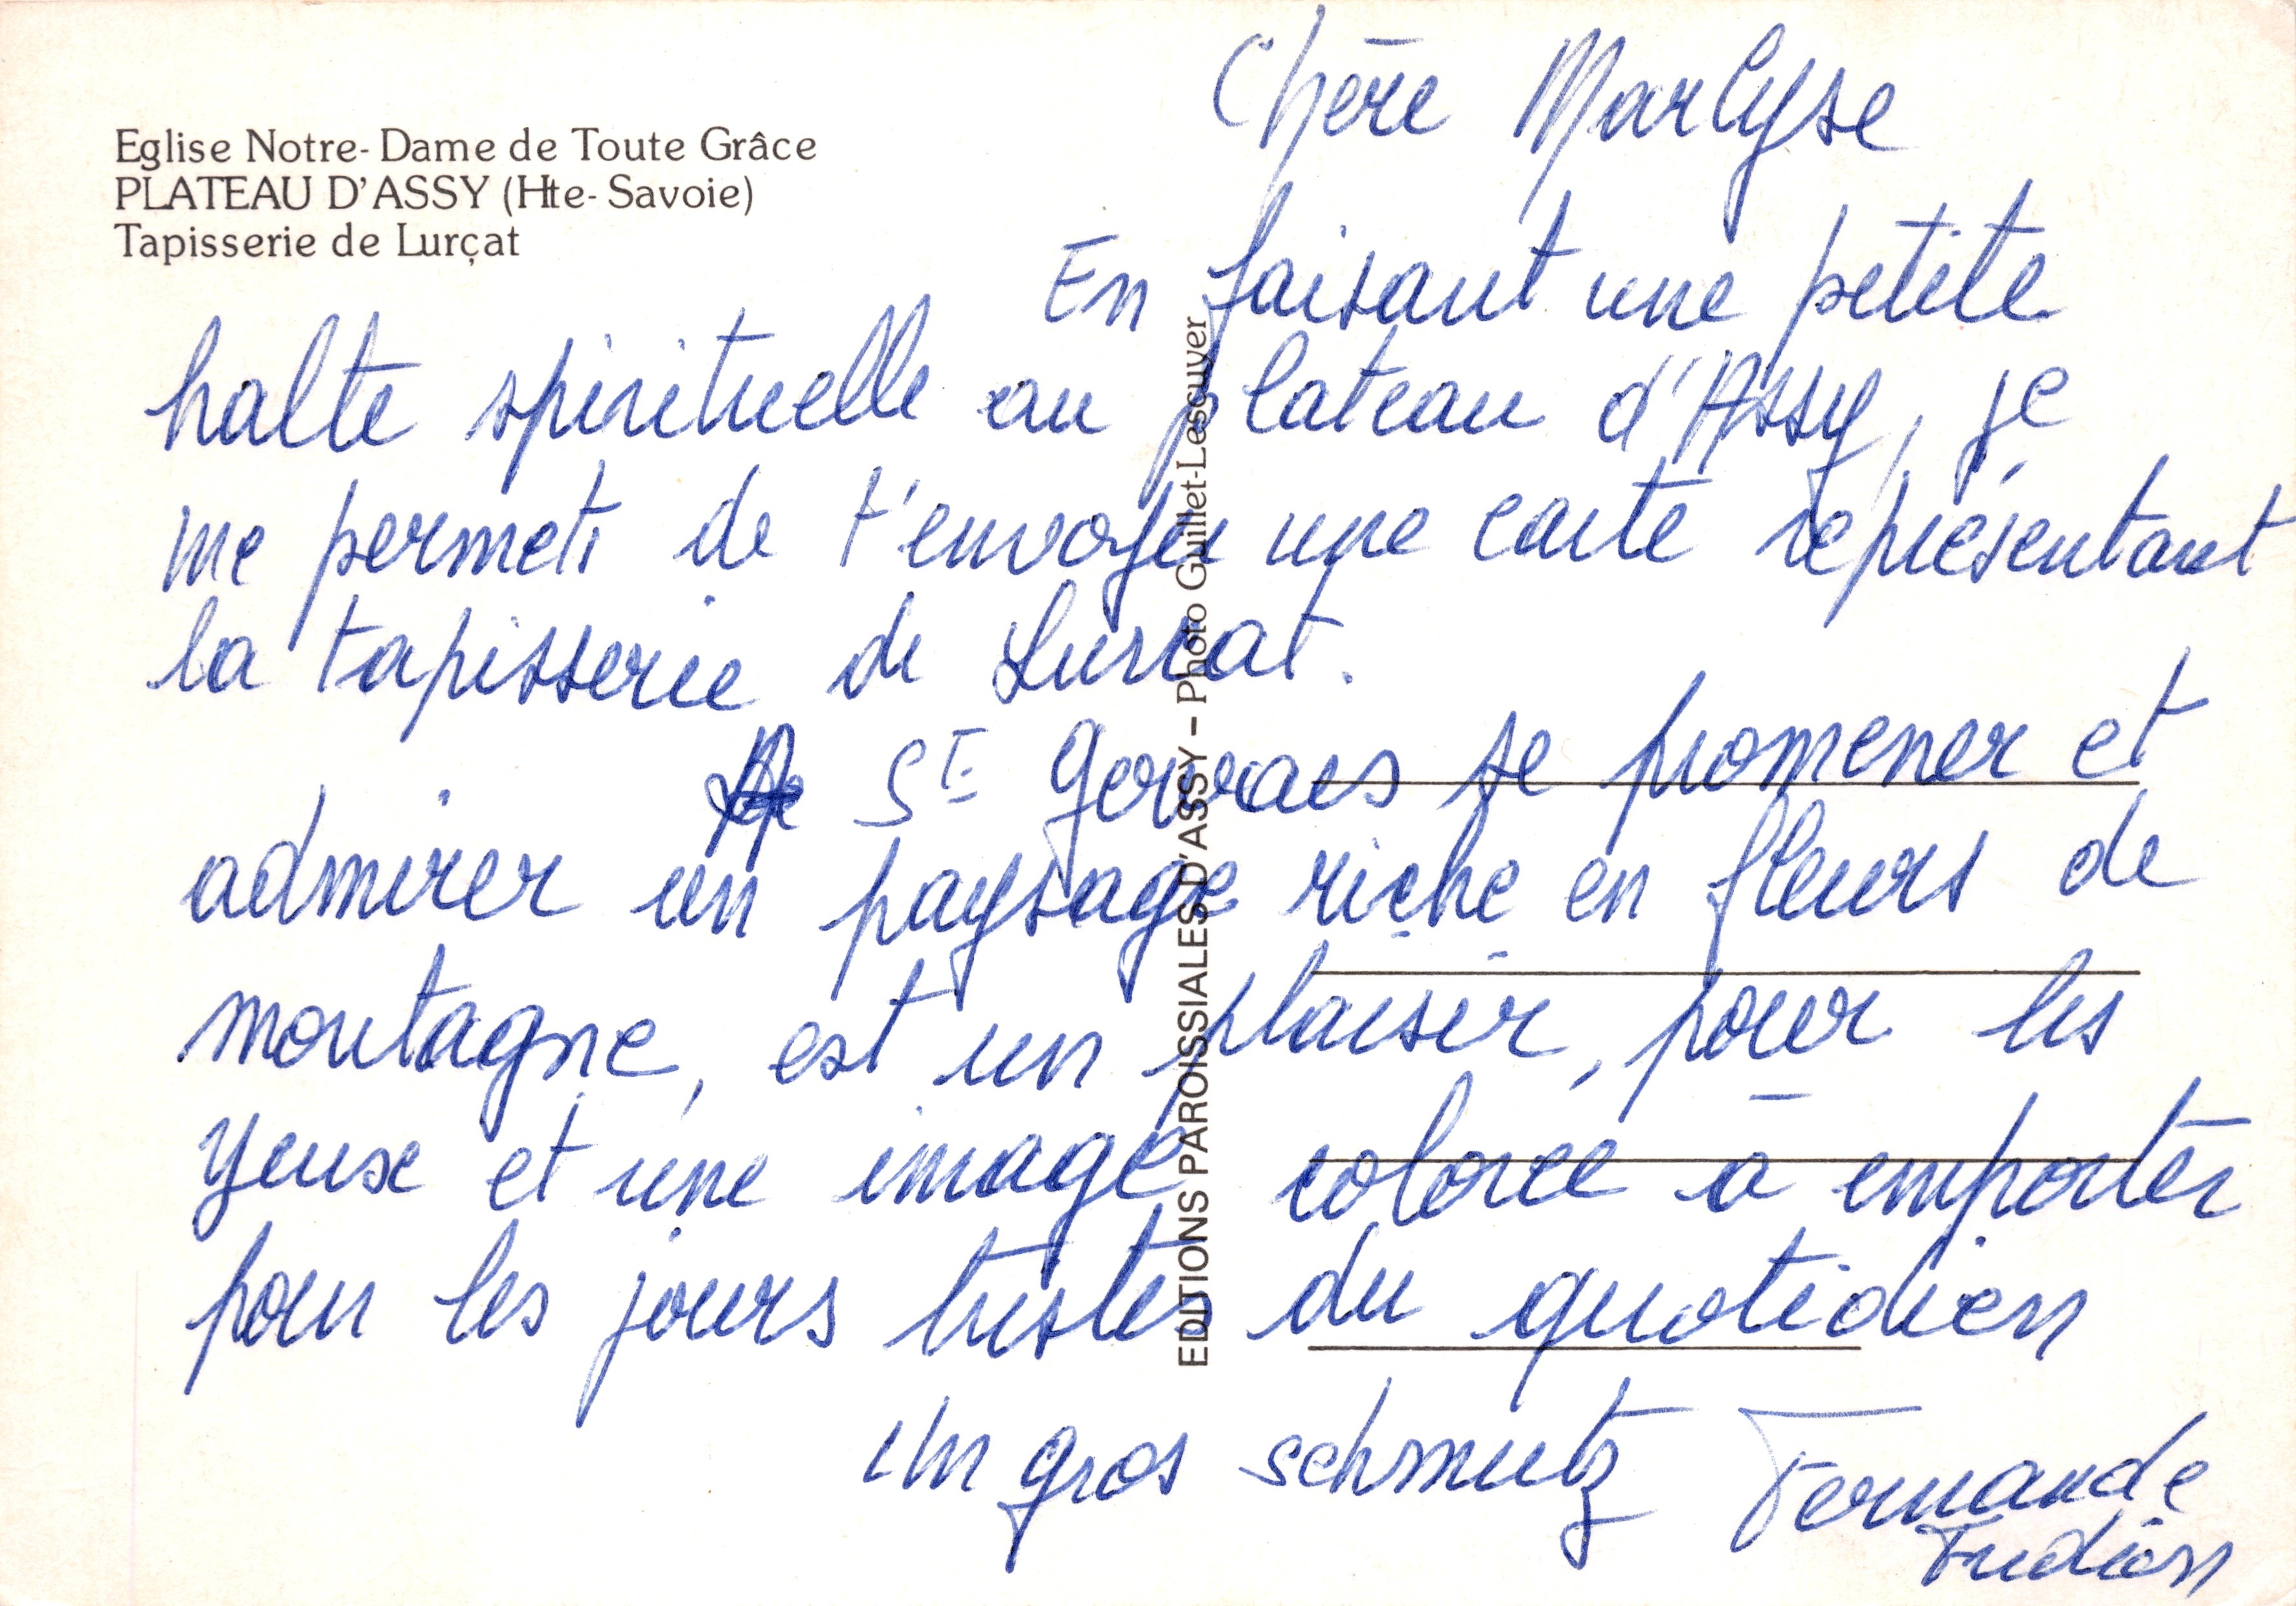 Eglise Notre-Dame de Toute Grâce
PLATEAU D'ASSY (Hte-Savoie)
Tapisserie de Lurçat
Chère Marlyse
En faisant une petite
halte spirituelle au plateau d'Assy, je
me permets de t'envoyer une carte représentant
la tapisserie de Lurcat.
A St Gervais se promener et
admirer un paysage riche en fleurs de
montagne, est un plaisir, pour les
yeux et une image colorée à emporter
pour les jours tristes du quotidien
un gros schmutz Fernande
EDITIONS PAROISSIALES D'ASSY – Photo Guillet-Lescuyer